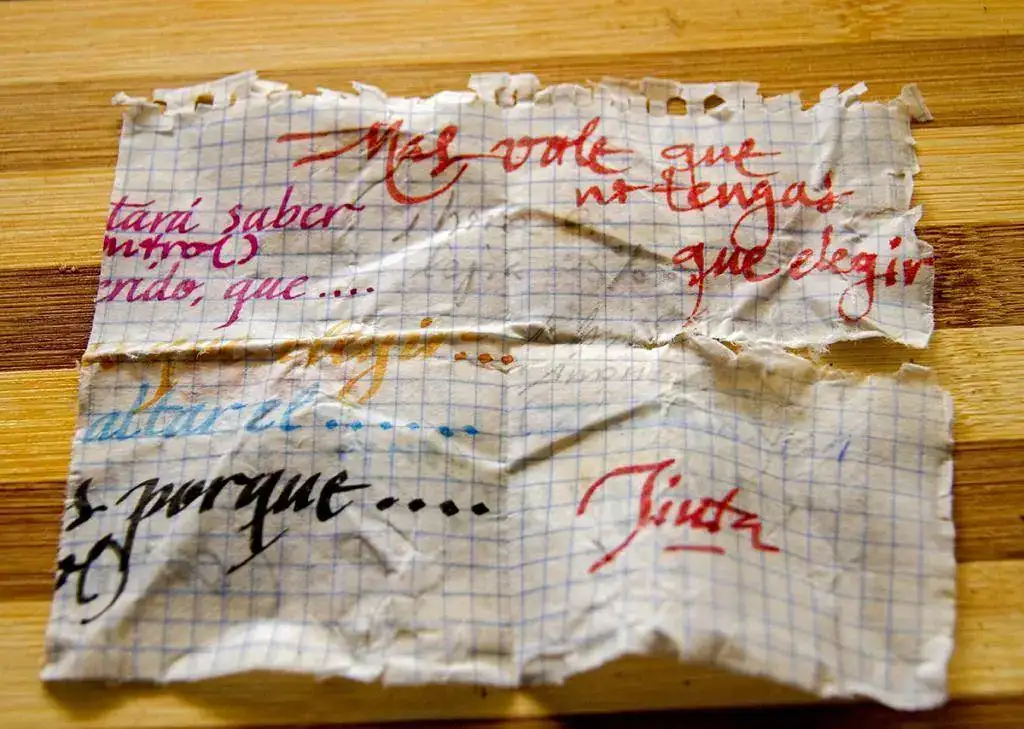 Mas vale que
no tengas
que elegir
tará saber
ntro()
erido, que ....
que elegir....
altar el .......
s porque ....
Tinta